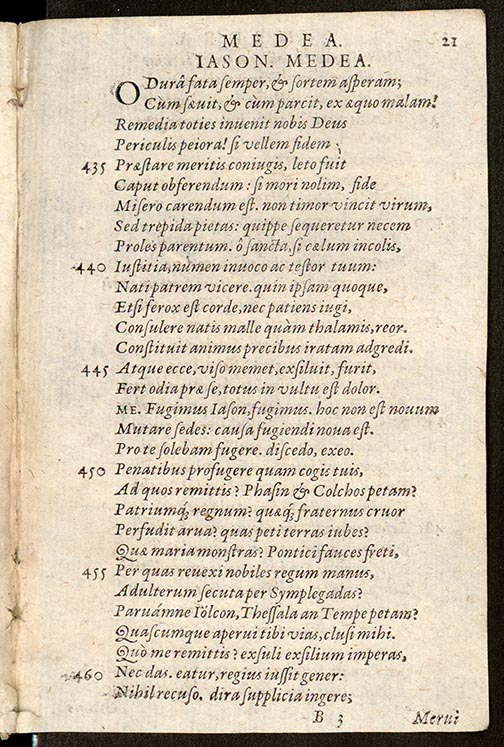 MEDEA. 21
IASON. MEDEA.
O Durâ fata semper, & sortem asperam;
Cùm sæuit, & cùm parcit, ex æquo malam!
Remedia toties inuenit nobis Deus
Periculis peiora! si vellem fidem
435 Præstare meritis coniugis, leto fuit
Caput obferendum: si mori nolim, fide
Misero carendum est. non timor vincit virum,
Sed trepida pietas: quippe sequeretur necem
Proles parentum. ô sancta, si cælum incolis,
440 Iustitia, numen inuoco ac testor tuum:
Nati patrem vicere. quin ipsam quoque,
Etsi ferox est corde, nec patiens iugi,
Consulere natis malle quàm thalamis, reor.
Constituit animus precibus iratam adgredi.
445 Atque ecce, viso memet, exsiluit, furit,
Fert odia præ se, totus in vultu est dolor.
ME. Fugimus Iason, fugimus. hoc non est nouum
Mutare sedes: causa fugiendi noua est.
Pro te solebam fugere. discedo, exeo.
450 Penatibus profugere quam cogis tuis,
Ad quos remittis? Phasin & Colchos petam?
Patriumq́; regnum? quæq́; fraternus cruor
Perfudit arua? quas peti terras iubes?
Quæ maria monstras? Pontici fauces freti,
455 Per quas reuexi nobiles regum manus,
Adulterum secuta per Symplegadas?
Paruámne Iôlcon, Thessala an Tempe petam?
Quascumque aperui tibi vias, clusi mihi.
Quò me remittis? exsuli exsilium imperas,
460 Nec das. eatur, regius iussit gener:
Nihil recuso. dira supplicia ingere;
B 3 Merui